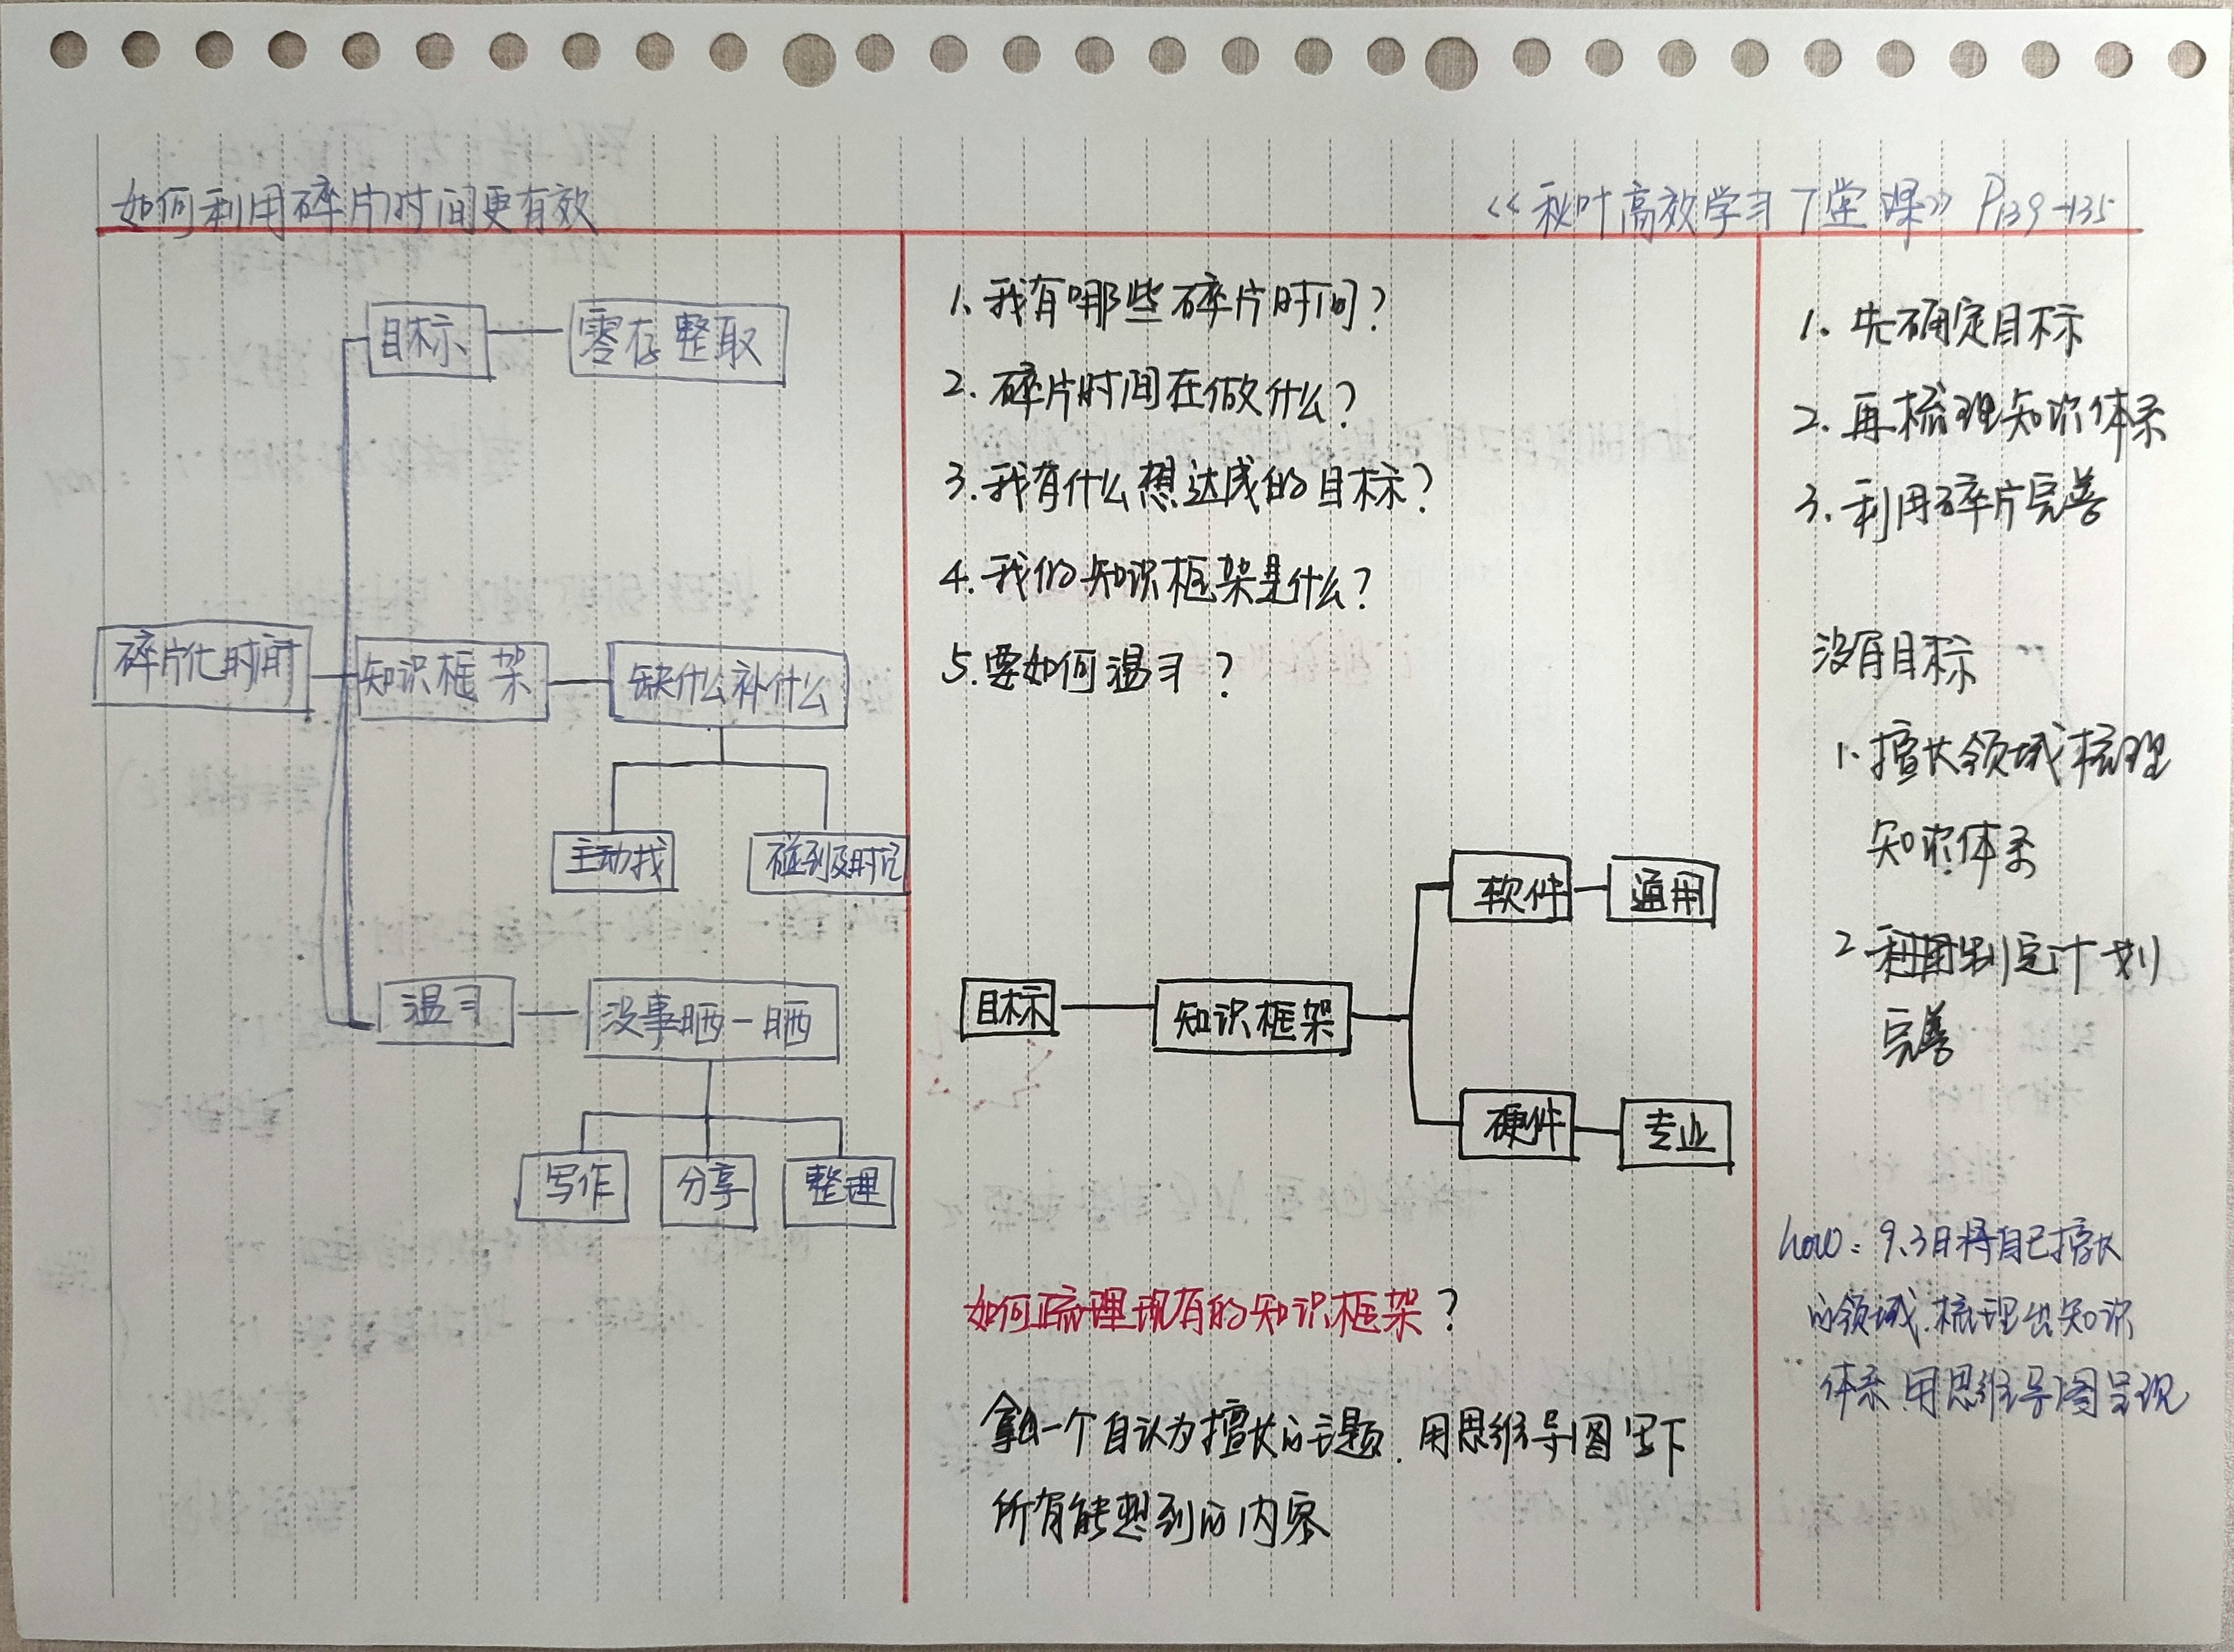 如何利用碎片时间更有效
《秋叶高效学习7堂课》 P139-135
目标
零存整取
碎片化时间
知识框架
缺什么补什么
主动找
碰到及时记
温习
没事晒一晒
写作
分享
整理
1. 我有哪些碎片时间?
2. 碎片时间在做什么?
3. 我有什么想达成的目标?
4. 我的知识框架是什么?
5. 要如何温习?
目标
知识框架
软件
通用
硬件
专业
如何梳理现有的知识框架?
拿出一个自认为擅长的主题. 用思维导图写下
所有能想到的内容
1. 先确定目标
2. 再梳理知识体系
3. 利用碎片完善
没有目标
1. 擅长领域梳理
知识体系
2 利用制定计划
完善
how: 9.3日将自己擅长
的领域. 梳理出知识
体系 用思维导图呈现